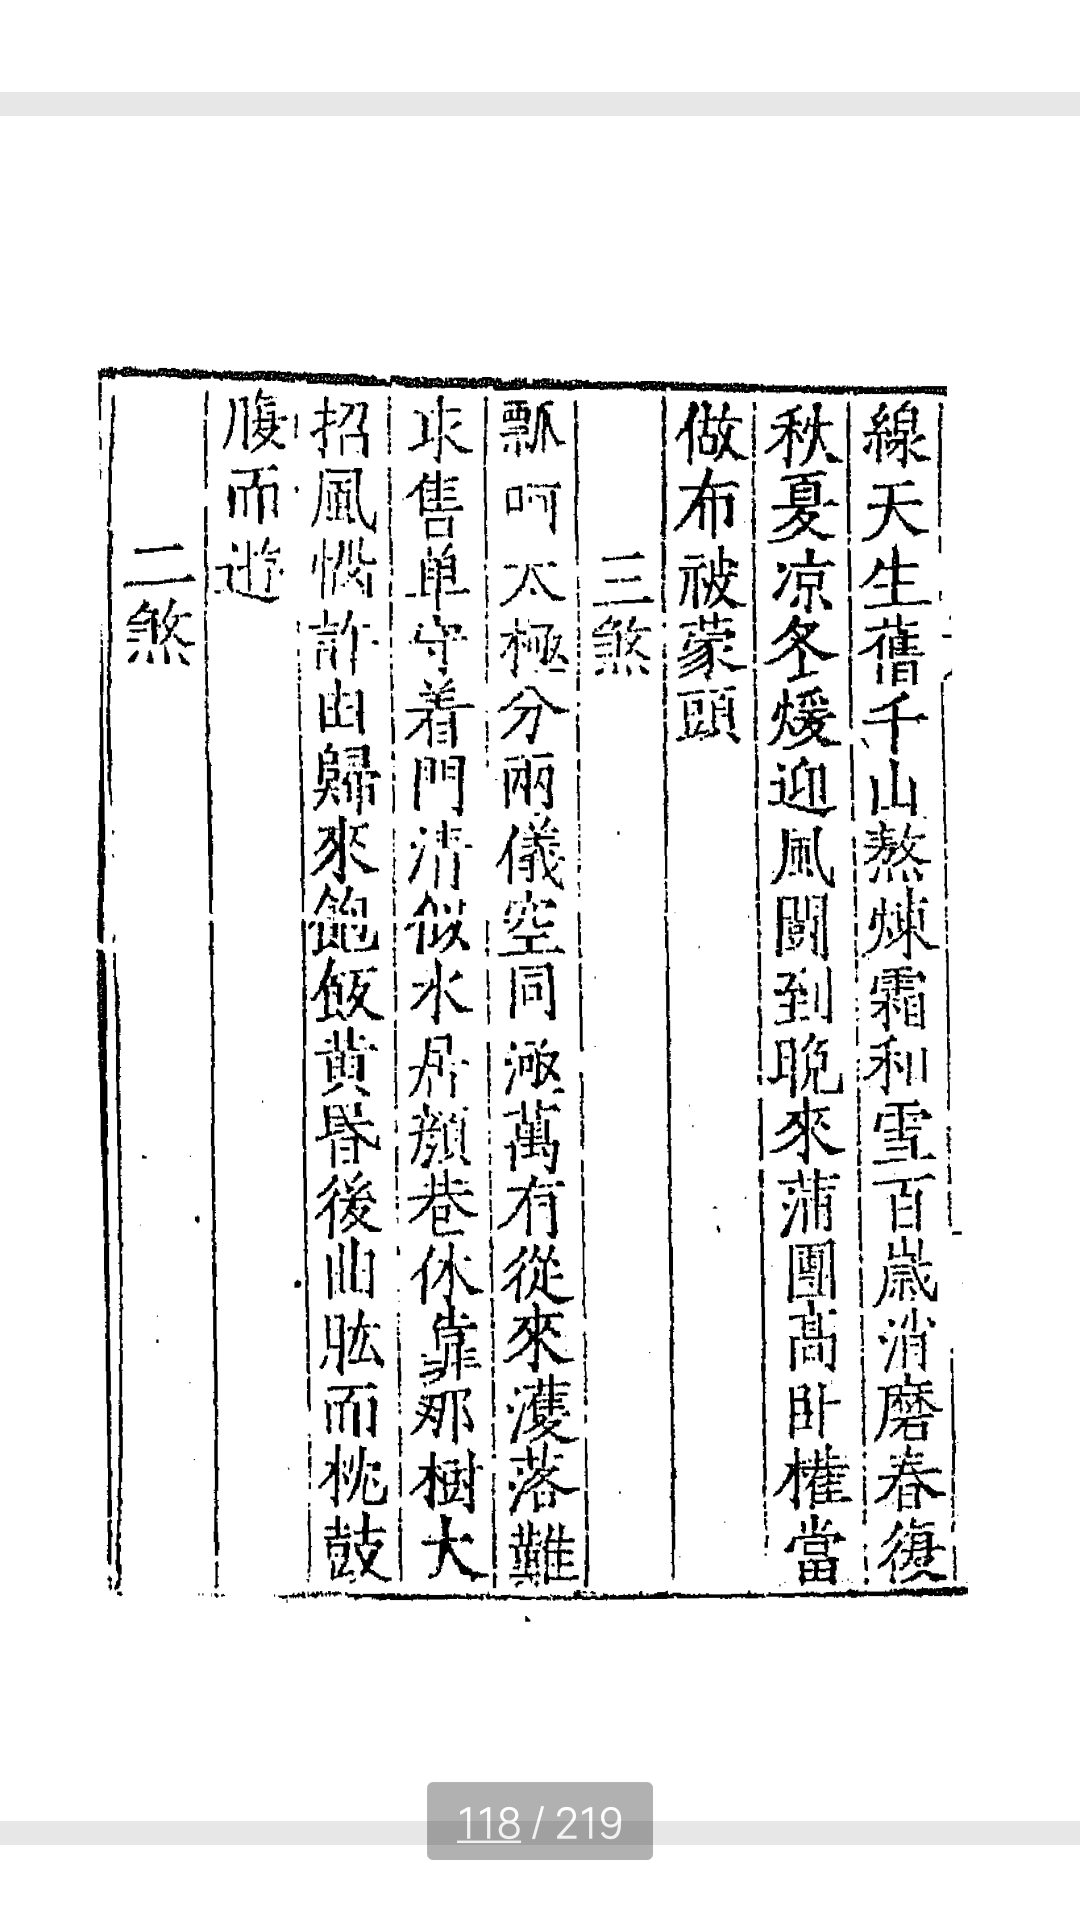 線天生舊千山熬煉霜和雪百歲消磨春復
秋夏凉冬煖迎風閙到晩來蒲團高卧權當
做布被蒙頭
三煞
瓢呵太極分兩儀空同極萬有從來濩落難
求售單守着門清似水居顔巷休靠那樹大
招風惱許由歸來飽飯黄昏後曲肱而枕鼓
腹而遊
二煞
118 / 219